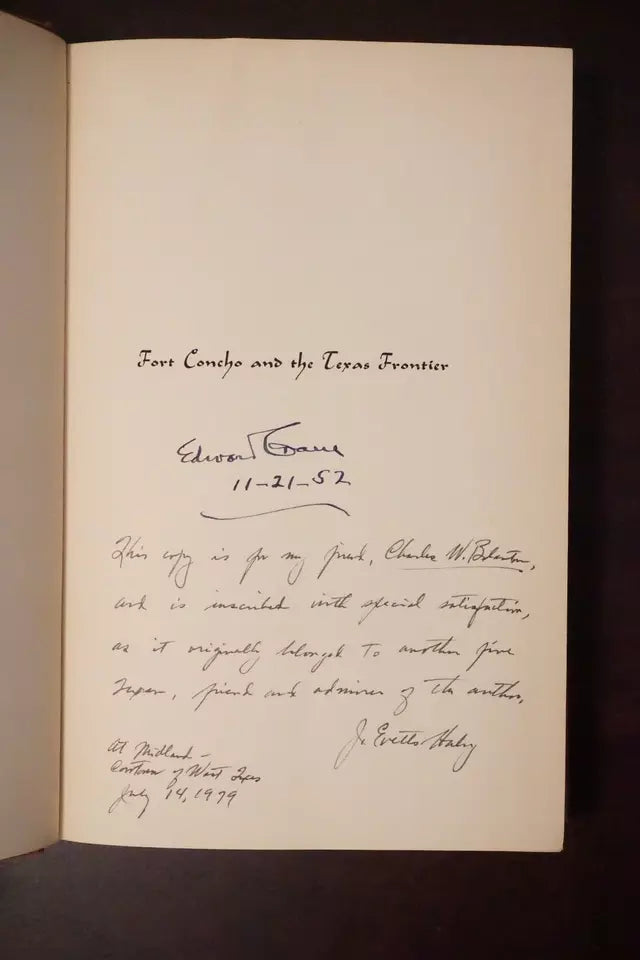 Fort Concho and the Texas Frontier
Edward Crane
11-21-52
This copy is for my friend, Charles W. Blanton,
and is inscribed with special satisfaction,
as it originally belonged to another fine
Texan, friend and admirer of the author.
J. Evetts Haley
At Midland –
Cowtown of West Texas
July 14, 1979